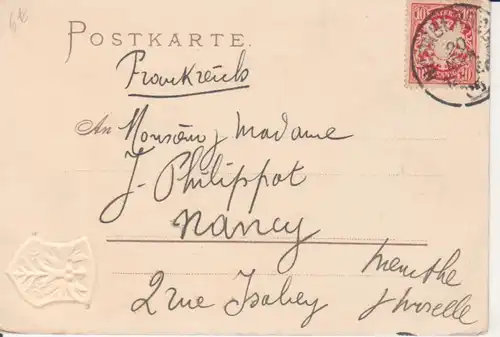 POSTKARTE.
Frankreich
An Monsieur, Madame
J. Philippot
Nancy
2 rue Isabey
Meurthe
& Moselle
10 10
20